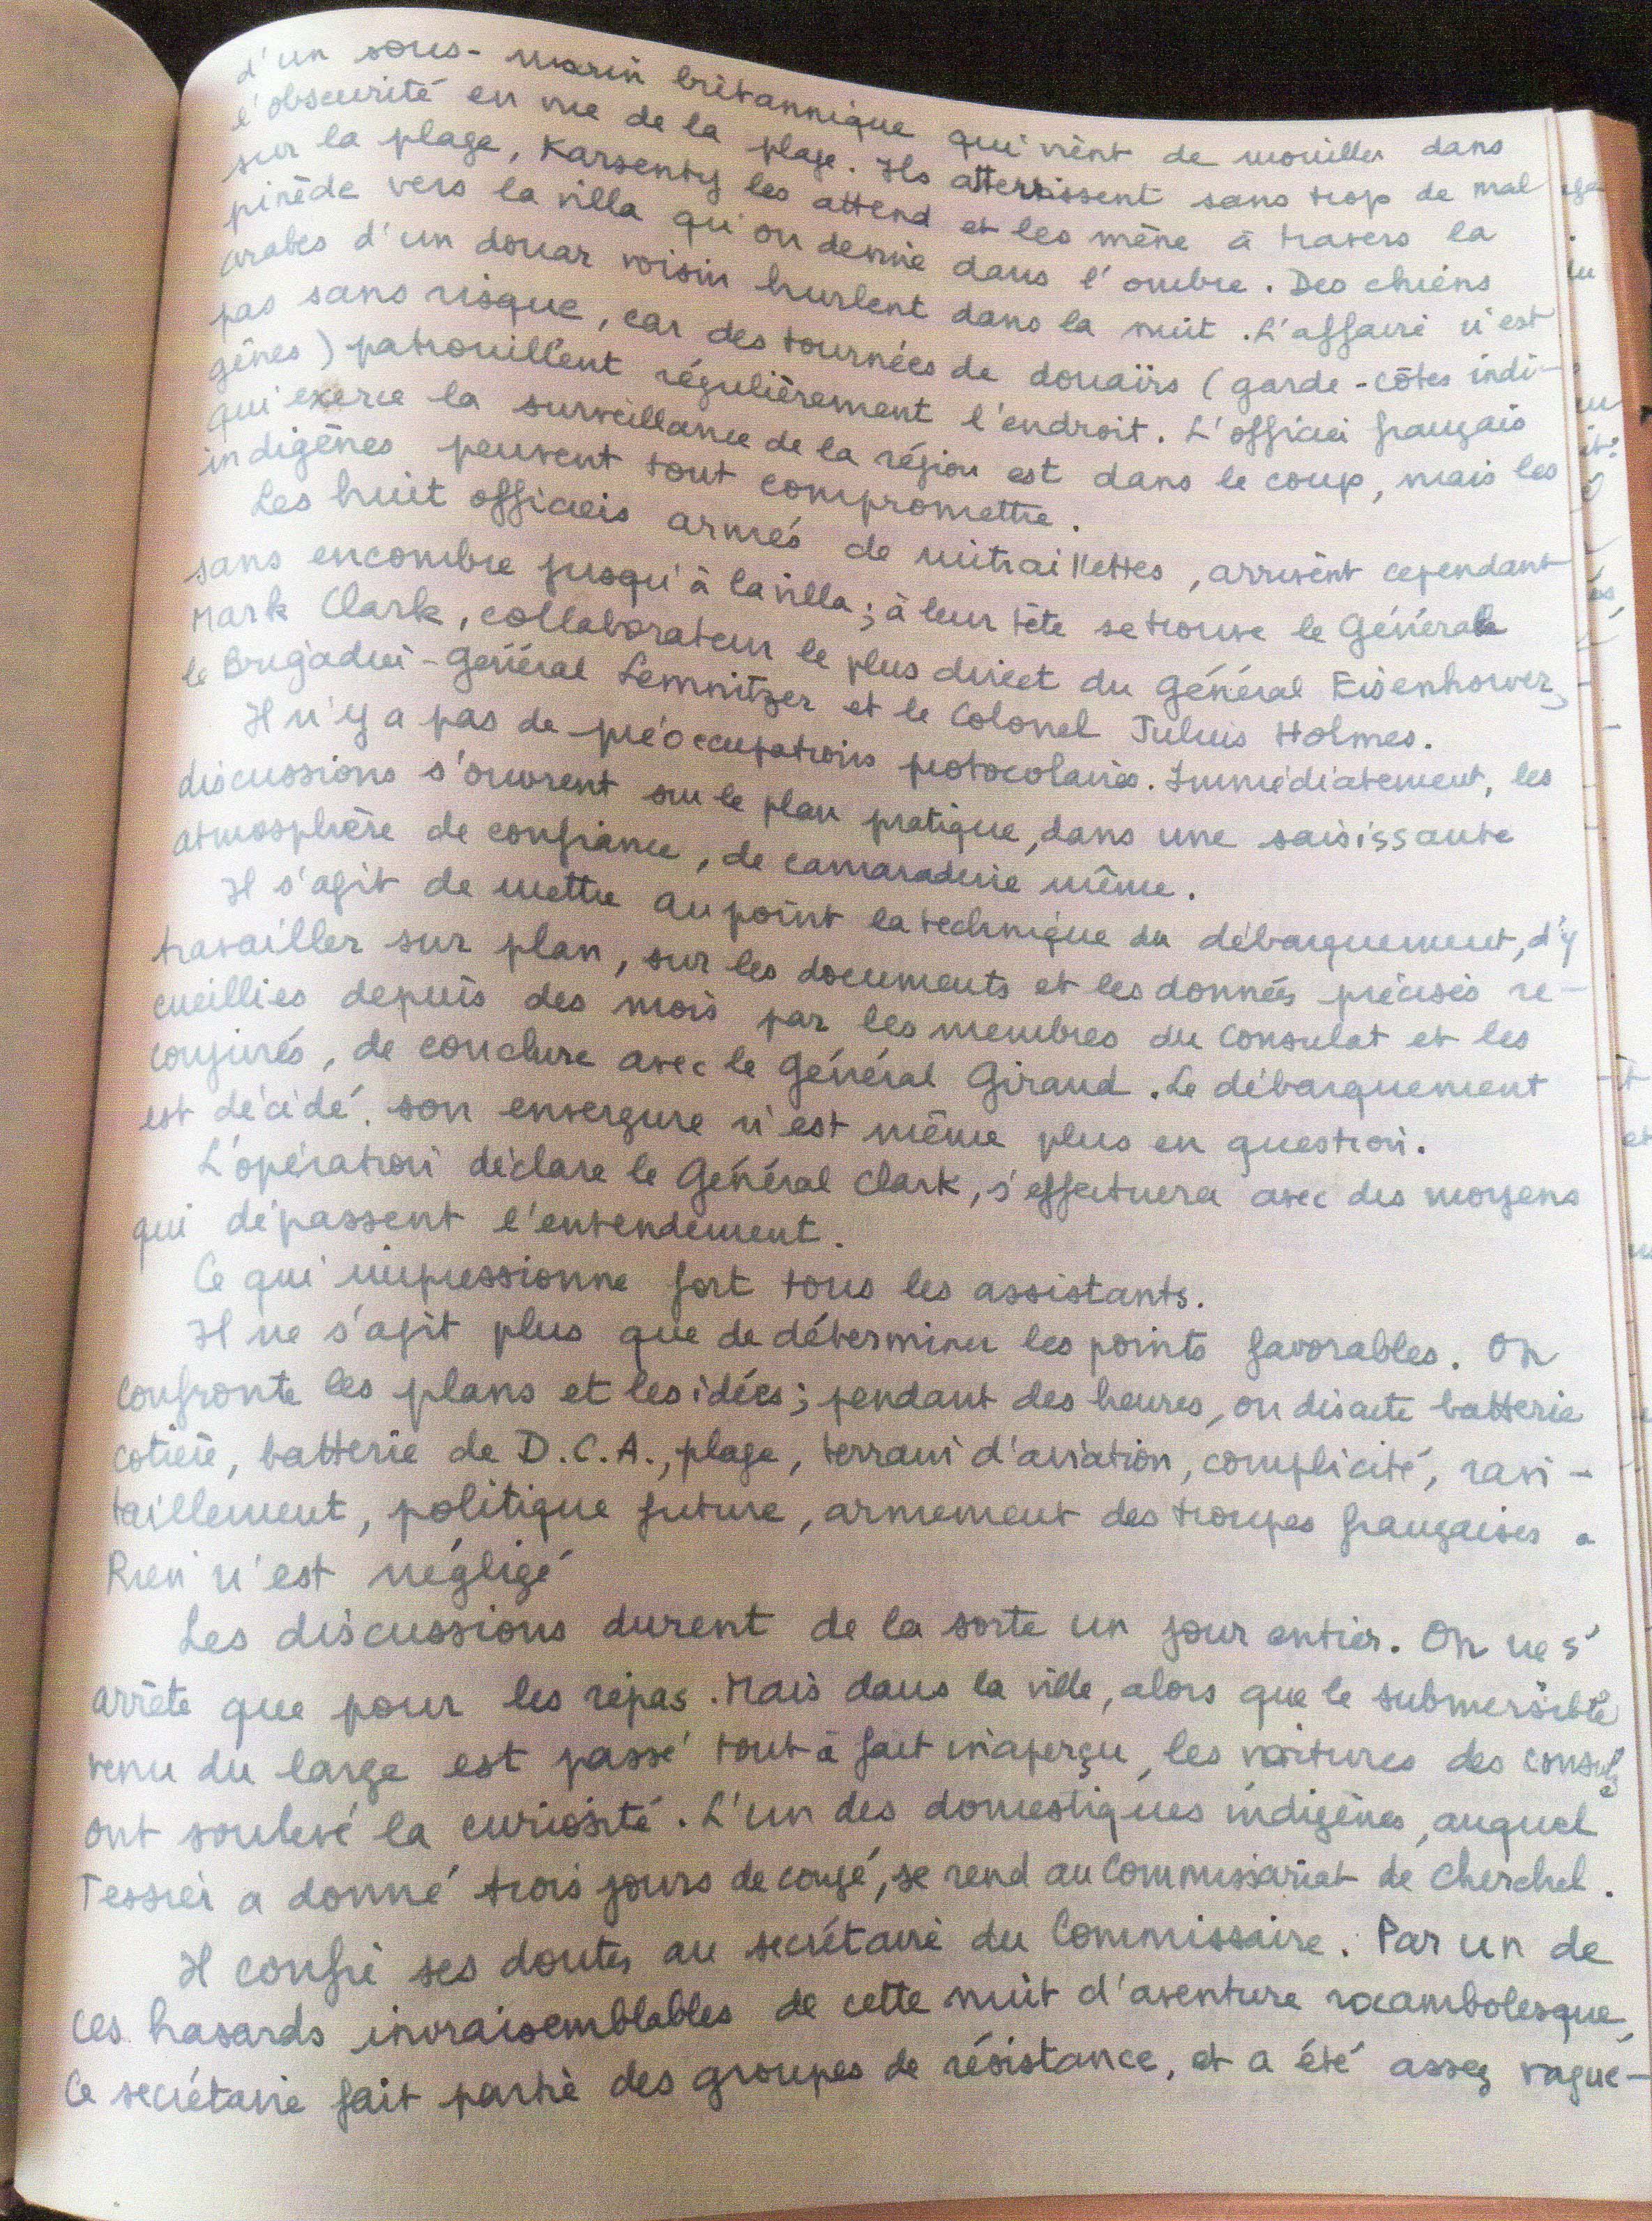 d'un sous-marin britannique qui vient de mouiller dans
l'obscurité en vue de la plage. Ils atterrissent sans trop de mal
sur la plage, Karsenty les attend et les mène à travers la
pinède vers la villa qu'on devine dans l'ombre. Des chiens
arabes d'un douar voisin hurlent dans la nuit. L'affaire n'est
pas sans risque, car des tournées de douaïrs (garde-côtes indi-
gènes) patrouillent régulièrement l'endroit. L'officier français
qui exerce la surveillance de la région est dans le coup, mais les
indigènes peuvent tout compromettre.
Les huit officiers armés de mitraillettes, arrivent cependant
sans encombre jusqu'à la villa ; à leur tête se trouve le Général
Mark Clark, collaborateur le plus direct du Général Eisenhower,
le Brigadier-Général Lemnitzer et le Colonel Julius Holmes.
Il n'y a pas de préoccupations protocolaires. Immédiatement, les
discussions s'ouvrent sur le plan pratique, dans une saisissante
atmosphère de confiance, de camaraderie même.
Il s'agit de mettre au point la technique du débarquement, d'y
travailler sur plan, sur les documents et les données précises re-
cueillies depuis des mois par les membres du Consulat et les
conjurés, de conclure avec le Général Giraud. Le débarquement
est décidé. son envergure n'est même plus en question.
L'opération déclare le Général Clark, s'effectuera avec des moyens
qui dépassent l'entendement.
Ce qui impressionne fort tous les assistants.
Il ne s'agit plus que de déterminer les points favorables. On
confronte les plans et les idées ; pendant des heures, on discute batterie
cotière, batterie de D.C.A., plage, terrain d'aviation, complicité, ravi-
taillement, politique future, armement des troupes françaises.
Rien n'est négligé
Les discussions durent de la sorte un jour entier. On ne s'
arrête que pour les repas. Mais dans la ville, alors que le submersible
venu du large est passé tout à fait inaperçu, les voitures des consuls
ont soulevé la curiosité. L'un des domestiques indigènes, auquel
Tessier a donné trois jours de congé, se rend au Commissariat de Cherchel.
Il confie ses doutes au secrétaire du Commissaire. Par un de
ces hasards invraisemblables de cette nuit d'aventure rocambolesque,
ce secrétaire fait partie des groupes de résistance, et a été assez vague-